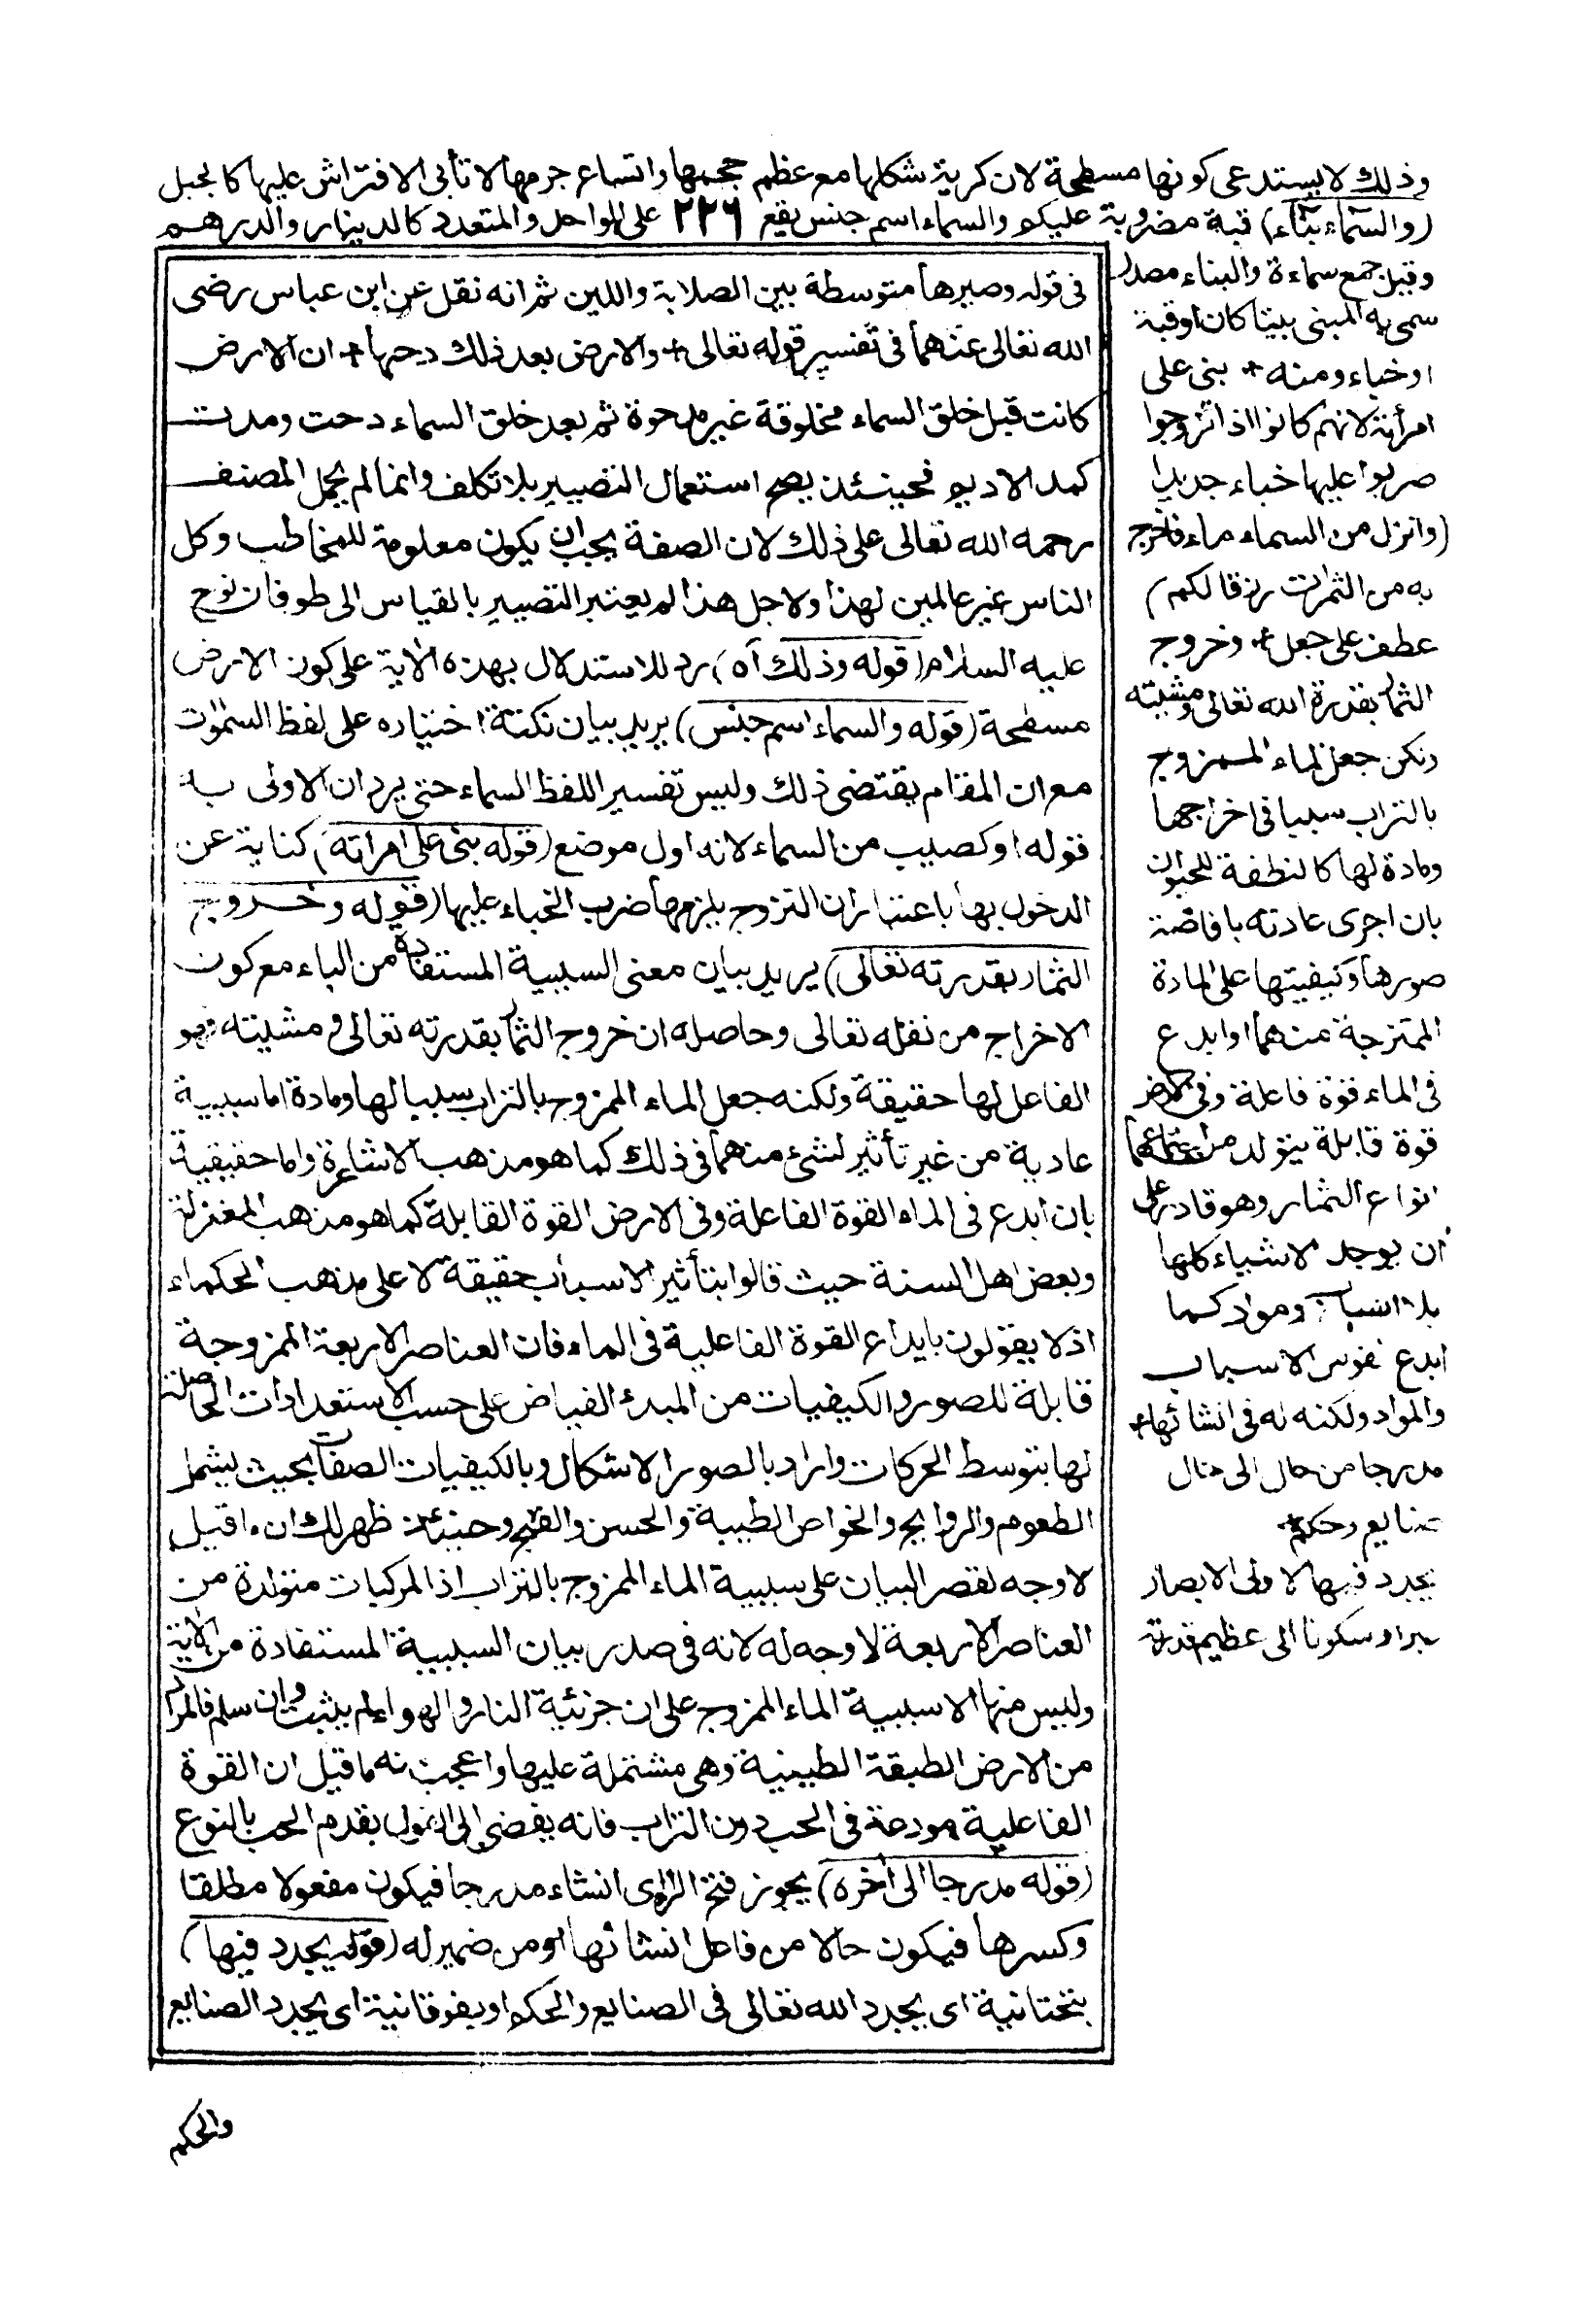 وذلك لا يستدعى كونها مسطحة لان كرية شكلها مع عظم حجمها واتساع جرمها لا تأبى الافتراش عليها كالجبل
(والسماء بناء) قبة مضروبة عليكم والسماء اسم جنس يقع ٢٢٦ على الواحد والمتعدد كالدينار والدرهم
وقيل جمع سماءة والبناء مصدر
سمى به المبنى بيتا كان او قبة
او خباء ومنه * بنى على
امرأته لانهم كانوا اذا تزوجوا
ضربوا عليها خباء جديدا
(وانزل من السماء ماء فاخرج
به من الثمرات رزقا لكم)
عطف على جعل * وخروج
الثمار بقدرة الله تعالى ومشيته
ولكن جعل الماء الممزوج
بالتراب سببا فى اخراجها
ومادة لها كالنطفة للحيوان
بان اجرى عادته بافاضة
صورها وكيفيتها على المادة
الممتزجة منهما او ابدع
فى الماء قوة فاعلة وفى الارض
قوة قابلة يتولد من اجتماعهما
انواع الثمار وهو قادر على
ان يوجد الاشياء كلها
بلا اسباب ومواد كما
ابدع نفوس الاسباب
والمواد ولكنه له فى انشائها *
مدرجا من حال الى حال
صنايع وحكم *
يجدد فيها لاولى الابصار
عبرا وسكونا الى عظيم قدرته
فى قوله وصيرها متوسطة بين الصلابة واللين ثم انه نقل عن ابن عباس رضى
الله تعالى عنهما فى تفسير قوله تعالى * والارض بعد ذلك دحيها * ان الارض
كانت قبل خلق السماء مخلوقة غير مدحوة ثم بعد خلق السماء دحت ومدت
كمد الاديم فحينئذ يصح استعمال التصيير بلا تكلف وانما لم يحمل المصنف
رحمه الله تعالى على ذلك لان الصفة يجب ان يكون معلومة للمخاطب وكل
الناس غير عالمين لهذا ولاجل هذا لم يعتبر التصيير بالقياس الى طوفان نوح
عليه السلام (قوله وذلك آه) رد للاستدلال بهذه الآية على كون الارض
مسطحة (قوله والسماء اسم جنس) يريد بيان نكتة اختياره على لفظ السموات
مع ان المقام يقتضى ذلك وليس تفسير اللفظ السماء حتى يرد ان الاولى به
قوله او كصيب من السماء لانه اول موضع (قوله بنى على امراته) كناية عن
الدخول بها باعتبار ان التزوج يلزمها ضرب الخباء عليها (قوله وخروج
الثمار بقدرته تعالى) يريد بيان معنى السببية المستفادة من الباء مع كون
الاخراج من نفله تعالى وحاصله ان خروج الثمار بقدرته تعالى ومشيئته فهو
الفاعل لها حقيقة ولكنه جعل الماء الممزوج بالتراب سببا لها ومادة اما سببية
عادية من غير تأثير لشئ منهما فى ذلك كما هو مذهب الاشاعرة واما حقيقية
بان ابدع فى الماء القوة الفاعلة وفى الارض القوة القابلة كما هو مذهب المعتزلة
وبعض اهل السنة حيث قالوا بتأثير الاسباب حقيقة لا على مذهب الحكماء
اذ لا يقولون بايداع القوة الفاعلية فى الماء فان العناصر الاربعة الممزوجة
قابلة للصور والكيفيات من المبدء الفياض على حسب الاستعدادات الحاصلة
لها بتوسط الحركات واراد بالصور الاشكال وبالكيفيات الصفات بحيث يشمل
الطعوم والروايح والخواص الطبية والحسن والقبح وحينئذ ظهر لك ان ما قيل
لا وجه لقصر البيان على سببية الماء الممزوج بالتراب اذ المركبات متولدة من
العناصر الاربعة لا وجه له لانه فى صدر بيان السببية المستفادة من الآية
وليس منها الا سببية الماء الممزوج على ان جزئية النار والهواء لم يثبت وان سلم فالمراد
من الارض الطبقة الطينية وهى مشتملة عليها واعجب منه ما قيل ان القوة
الفاعلية مودعة فى الحب دون التراب فانه يفضى الى القول بقدم الحب بالنوع
(قوله مدرجا الى آخره) يجوز فتح الراء اى انشاء مدرجا فيكون مفعولا مطلقا
وكسرها فيكون حالا من فاعل انشائها او من ضمير له (قوله يجدد فيها)
بتحتانية اى يجدد الله تعالى فى الصنايع والحكم او بفوقانية اى يجدد الصنايع
والحكم